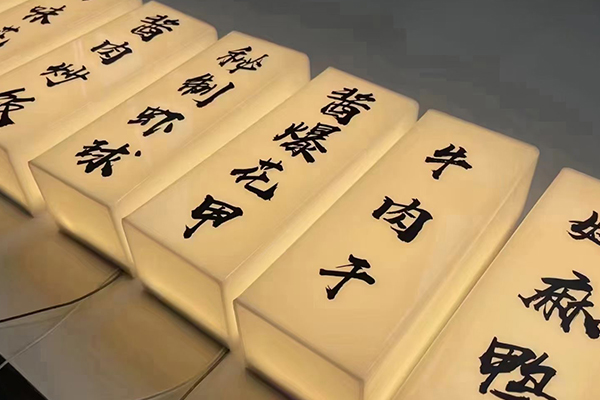 味
酱肉炒饭
秘制虾球
酱爆花甲
牛肉干
麻鸭